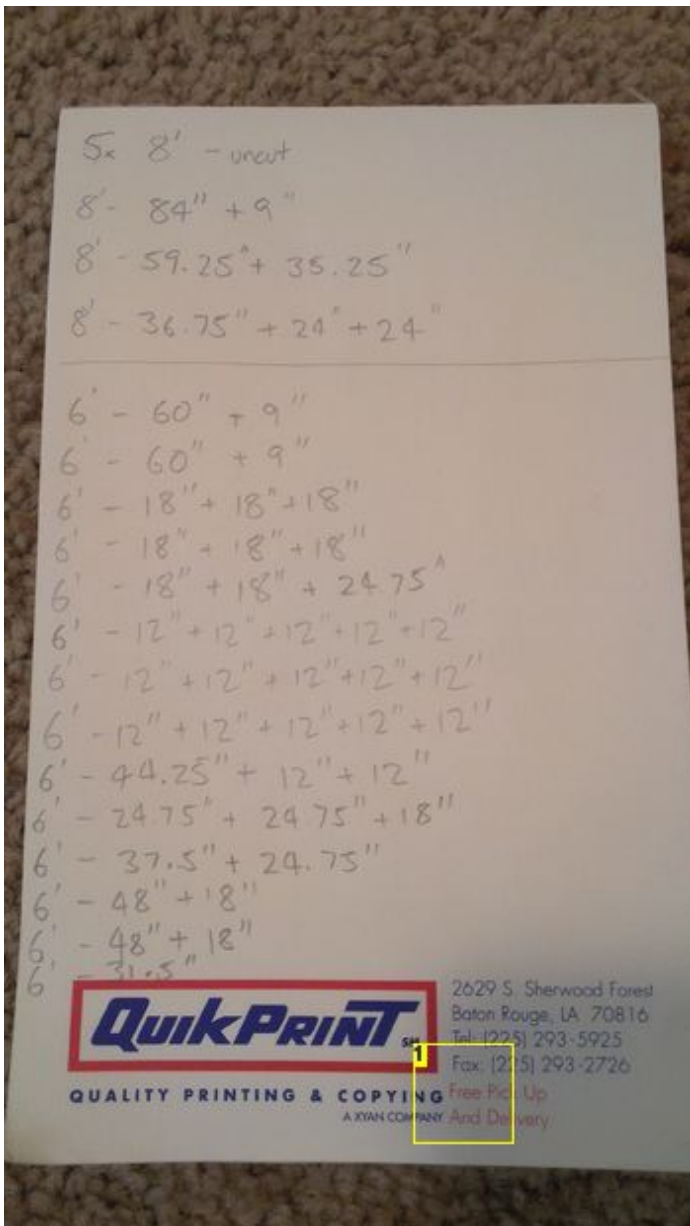 5x 8' - uncut
8' - 84" + 9"
8' - 59.25" + 35.25"
8' - 36.75" + 24" + 24"
6' - 60" + 9"
6' - 60" + 9"
6' - 18" + 18" + 18"
6' - 18" + 18" + 18"
6' - 18" + 18" + 24.75"
6' - 12" + 12" + 12" + 12" + 12"
6' - 12" + 12" + 12" + 12" + 12"
6' - 12" + 12" + 12" + 12" + 12"
6' - 44.25" + 12" + 12"
6' - 24.75" + 24.75" + 18"
6' - 37.5" + 24.75"
6' - 48" + 18"
6' - 48" + 18"
6' - 31.5"
QUIKPRINT SM
QUALITY PRINTING & COPYING
A XYAN COMPANY
2629 S. Sherwood Forest
Baton Rouge, LA 70816
Tel: (225) 293-5925
Fax: (225) 293-2726
Free Pick Up
And Delivery
1